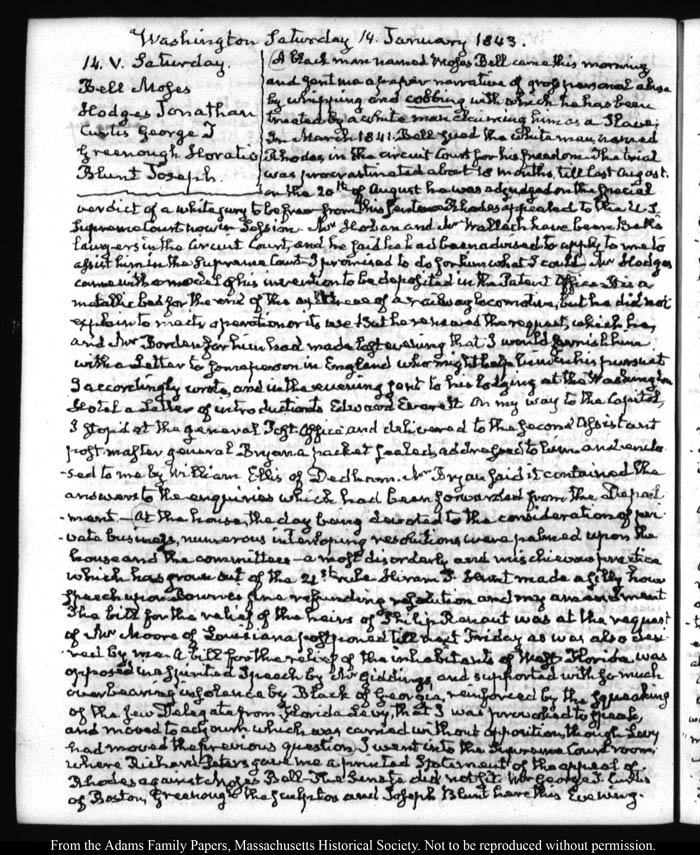 Washington Saturday 14. January 1843.
14. V. Saturday.
Bell Moses
Hodges Jonathan
Curtis George T
Greenough Horatio
Blunt Joseph.
A black man named Moses Bell came this morning
and gave me a paper narrative of gross personal abuse
by whipping and cobbing with which he has been
treated by a white man claiming him as a Slave.
In March 1841. Bell sued the white man, named
Rhodes, in the Circuit Court for his freedom. The trial
was procrastinated about 18 months, till last August.
On the 20th of August he was adjudged on the special
verdict of a white jury to be free. From this sentence Rhodes appealed to the U.S.
Supreme Court now in Session. Mr Hoban and Mr Wallach have been Bell's
lawyers in the Circuit Court, and he said he had been advised to apply to me to
assist him in the Supreme Court. I promised to do for him what I could. Mr Hodges
came with a model of his invention to be deposited in the Patent Office. It is a
metallic bed for the end of the axletree of a railway locomotive, but he did not
explain to me its operation or its use. But he renewed the request, which he,
and Mr Borden for him had made last evening that I would furnish him
with a Letter to some person in England who might help him in his pursuit
I accordingly wrote, and in the evening sent to his lodging at the Washington
Hotel a Letter of introduction to Edward Everett. On my way to the Capitol,
I stop'd at the general Post-Office and delivered to the Second Assistant
postmaster general Bryan a packet sealed, addressed to him and enclo
-sed to me by William Ellis of Dedham. Mr Bryan said it contained the
answers to the enquiries which had been forwarded from the Depart
-ment. At the house, the day being devoted to the consideration of pri
-vate business, numerous interloping resolutions were palmed upon the
house and the committees—a most disorderly and mischievous practice
which has grown out of the 21st rule. Hiram P. Hunt made a silly hour
speech upon Bowne's fine refunding resolution and my amendment
The bill for the relief of the heirs of Philip Renaut was at the request
of Mr Moore of Louisiana postponed till next Friday as was also desi
-red by me. A bill for the relief of the inhabitants of West Florida was
opposed in a spirited Speech by Mr Giddings, and supported with so much
overbearing insolence by Black of Georgia, reinforced by the squeaking
of the Jew Delegate from Florida Levy, that I was provoked to speak,
and moved to adjourn which was carried without opposition, though Levy
had moved the previous question. I went into the Supreme Court room
where Richard Peters gave me a printed Statement of the appeal of
Rhodes against Moses Bell. The Senate did not sit. Mr George T. Curtis
of Boston, Greenough the Sculptor and Joseph Blunt here this Evening.
From the Adams Family Papers, Massachusetts Historical Society. Not to be reproduced without permission.